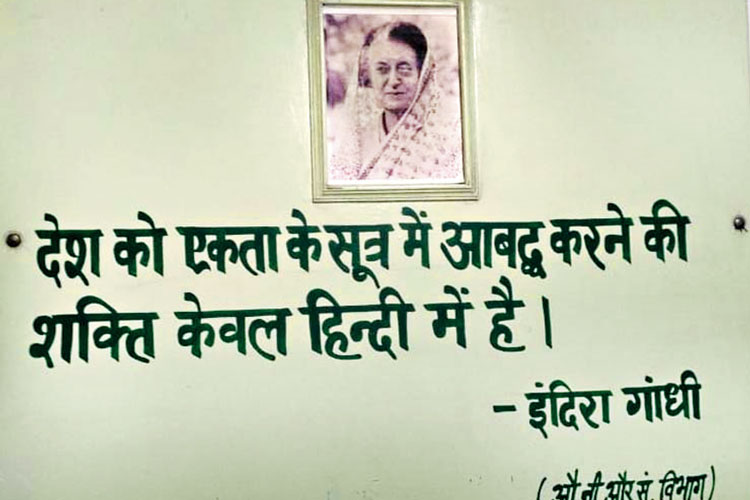 देश को एकता के सूत्र में आबद्ध करने की
शक्ति केवल हिन्दी में है।
- इंदिरा गांधी
(औ.नी और सं. विभाग)